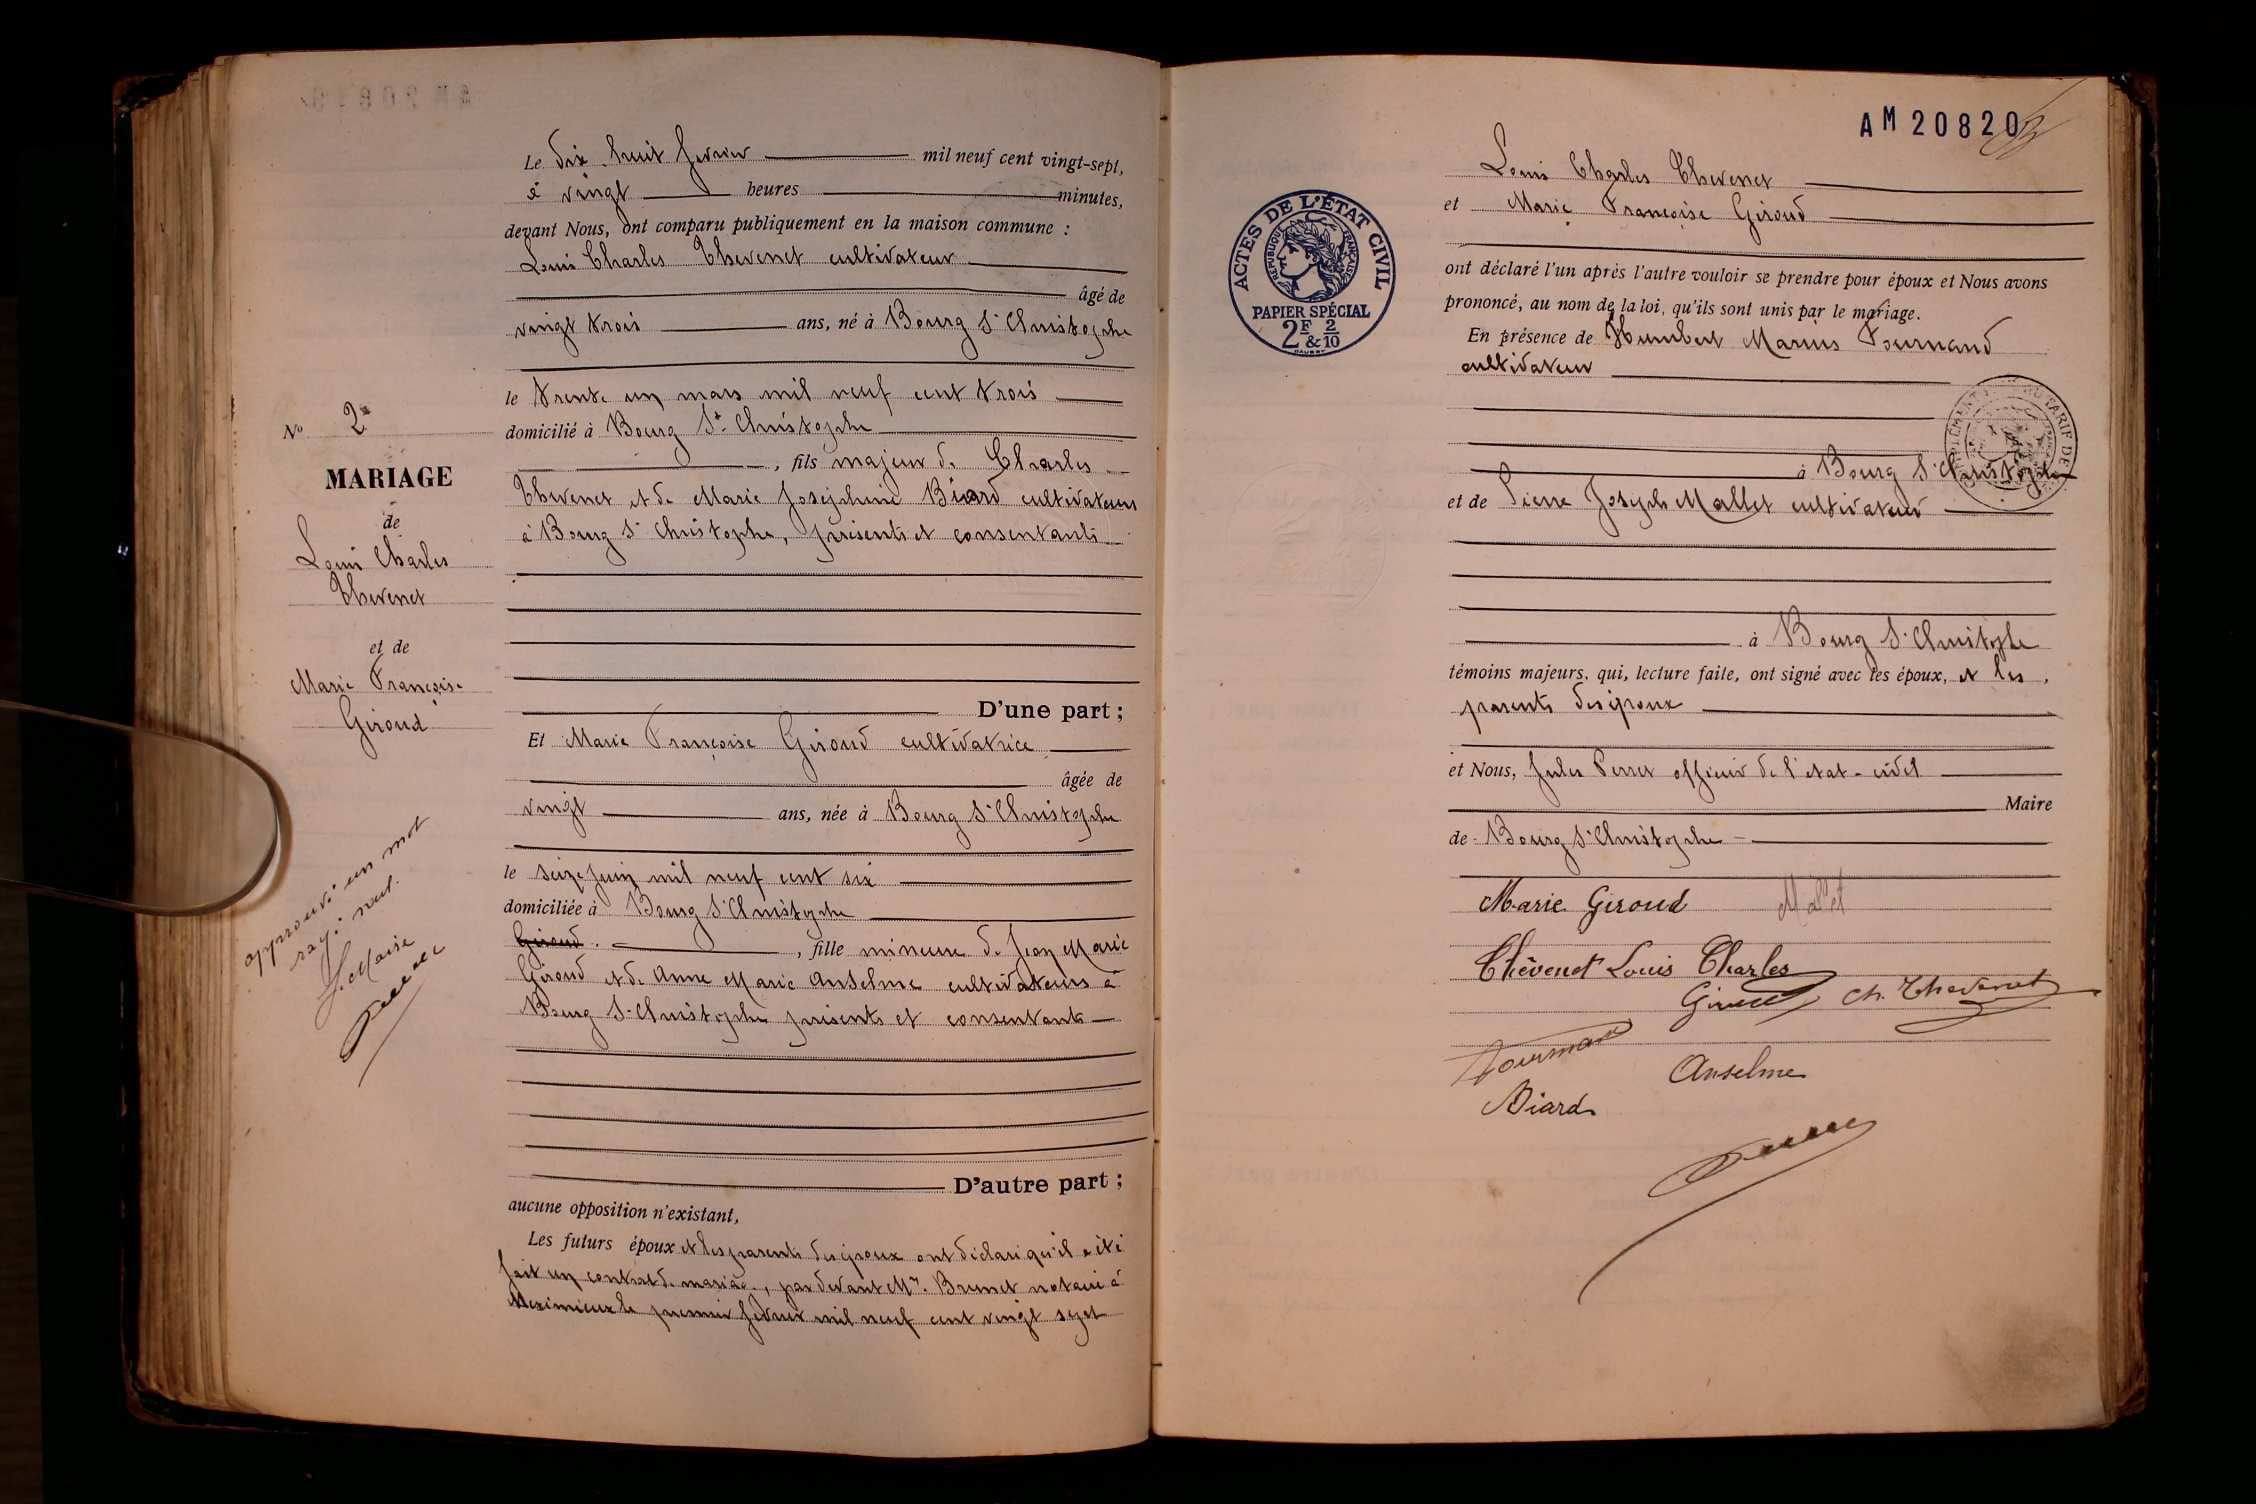 N° 2
MARIAGE
de
Louis Charles
Thevenet
et de
Marie Françoise
Giroud
approuvé un mot
rayé nul.
Le Maire
Perret
Le dix huit février mil neuf cent vingt-sept,
à vingt heures minutes,
devant Nous, ont comparu publiquement en la maison commune :
Louis Charles Thevenet cultivateur
âgé de
vingt trois ans, né à Bourg St Christophe
le trente un mars mil neuf cent trois
domicilié à Bourg St Christophe
, fils majeur de Charles
Thevenet et de Marie Joséphine Biard cultivateurs
à Bourg St Christophe, présents et consentants
D'une part ;
Et Marie Françoise Giroud cultivatrice
âgée de
vingt ans, née à Bourg St Christophe
le seize juin mil neuf cent six
domiciliée à Bourg St Christophe
Giroud. , fille mineure de Jean Marie
Giroud et de Anne Marie Anselme cultivateurs à
Bourg St Christophe présents et consentants
D'autre part ;
aucune opposition n'existant,
Les futurs époux et les parents des époux ont déclaré qu'il a été
fait un contrat de mariage, par devant Me. Brunet notaire à
Meximieux le premier février mil neuf cent vingt sept
AM20820
ACTES DE L'ÉTAT CIVIL
RÉPUBLIQUE FRANÇAISE
PAPIER SPÉCIAL
2F & 2/10
Louis Charles Thevenet
et Marie Françoise Giroud
ont déclaré l'un après l'autre vouloir se prendre pour époux et Nous avons
prononcé, au nom de la loi, qu'ils sont unis par le mariage.
En présence de Humbert Marius Tournand
cultivateur
à Bourg St Christophe
et de Pierre Joseph Mallet cultivateur
à Bourg St Christophe
témoins majeurs, qui, lecture faite, ont signé avec les époux, et les
parents des époux
et Nous, Jules Perret officier de l'etat-civil
Maire
de Bourg St Christophe
Marie Giroud Mallet
Thévenet Louis Charles
Giroud Ch. Thevenet
Tournand
Anselme
Biard
Perret